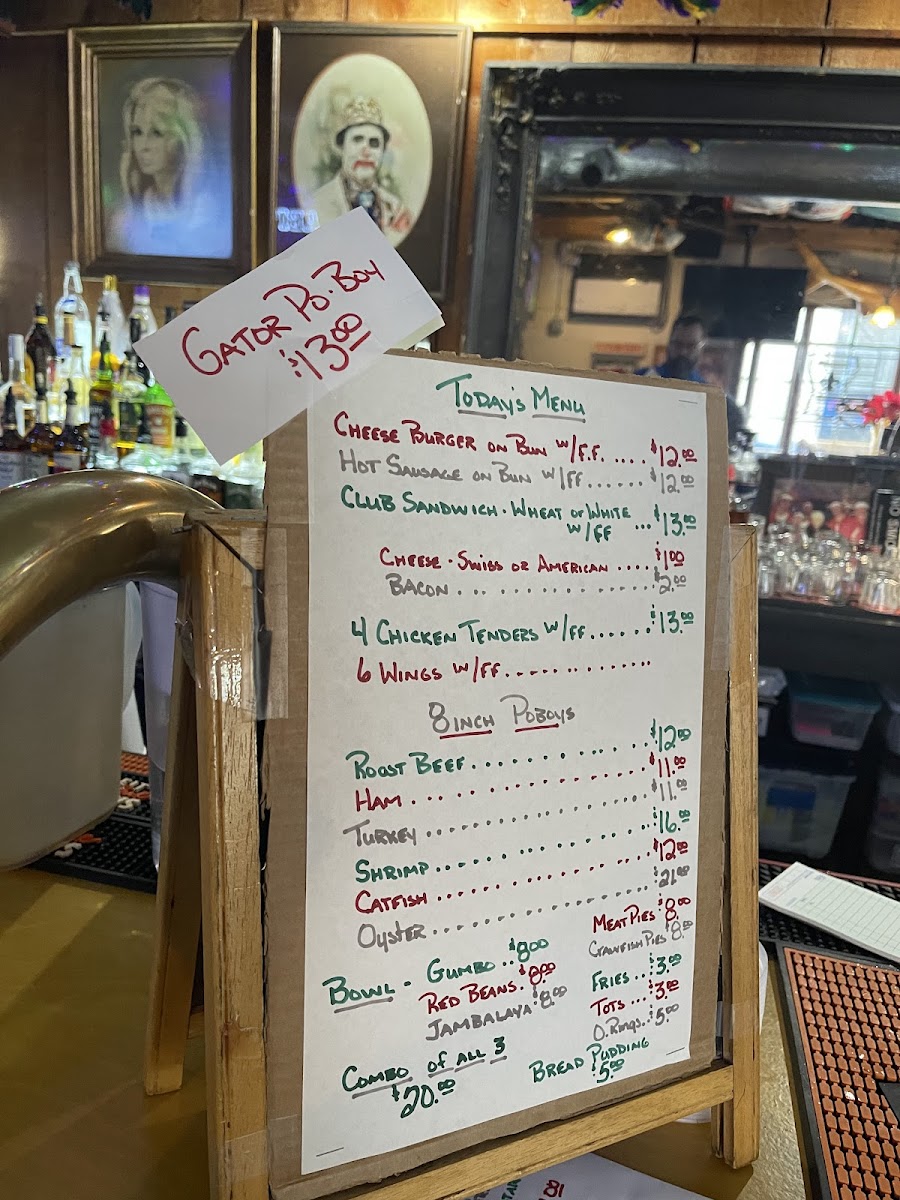 GATOR PO-BOY
$13.00
TODAY'S MENU
CHEESE BURGER ON BUN W/F.F. .... $12.00
HOT SAUSAGE ON BUN W/FF ...... $12.00
CLUB SANDWICH - WHEAT OR WHITE
W/FF ... $13.00
CHEESE - SWISS OR AMERICAN .... $1.00
BACON ... $2.00
4 CHICKEN TENDERS W/FF ...... $13.00
6 WINGS W/FF ..............
8 INCH POBOYS
ROOST BEEF .............. $12.00
HAM .............. $11.00
TURKEY .............. $11.00
SHRIMP .............. $16.00
CATFISH .............. $12.00
OYSTER .............. $21.00
BOWL - GUMBO .. $8.00
RED BEANS . $8.00
JAMBALAYA $8.00
MEAT PIES $8.00
CRAWFISH PIES $8.00
FRIES .. $3.00
TOTS ... $3.00
O. RINGS .. $5.00
COMBO OF ALL 3
$20.00
BREAD PUDDING
$5.00